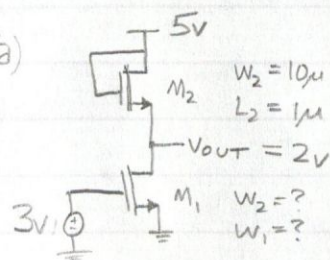 a)
5V
M₂
W₂ = 10μ
L₂ = 1μ
VOUT = 2V
3V
M₁
W₂ = ?
W₁ = ?